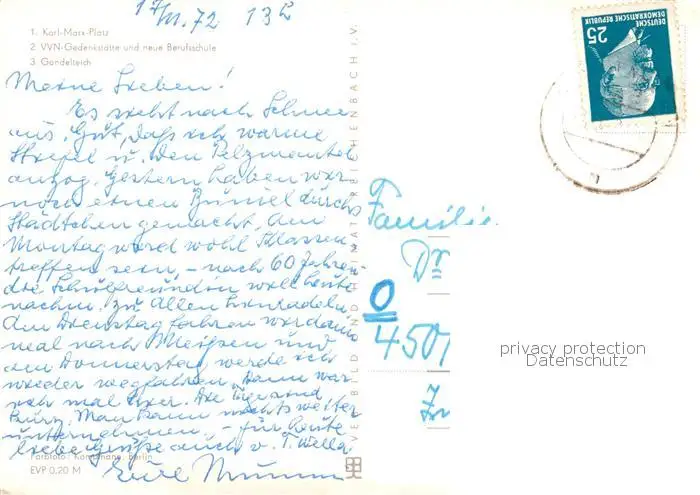 17/III.72 13h
1. Karl-Marx-Platz
2. VVN-Gedenkstätte und neue Berufsschule
3. Gondelteich
Meine Lieben!
Es sieht nach Schnee
aus. Gut, daß ich warme
Stiefel u. den Pelzmantel
anzog. Gestern haben wir
noch einen Bummel durchs
Städtchen gemacht. Am
Montag wird wohl Klassen-
treffen sein, - nach 60 Jahren
die Schulfreundin will heute
nachm. zu Allen
Am Dienstag fahren wir dann
mal nach Meißen und
am Donnerstag werde ich
wieder wegfahren. Dann war
ich mal hier. Die Tage sind
kurz. Man kann nichts weiter
unternehmen. - für heute
liebe Grüße auch v. T. Wella
Eure
Farbfoto: Berlin
EVP 0,20 M
VEB BILD UND HEIMAT REICHENBACH I.V.
DEUTSCHE
DEMOKRATISCHE REPUBLIK
25
Familie
Dr
O
4507
privacy protection
Datenschutz